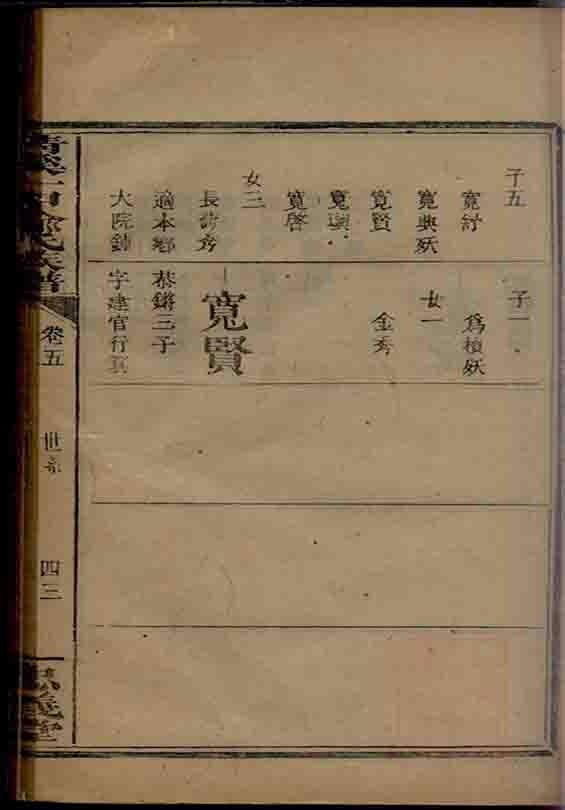 子五
寬紓
寬典殀
寬賢
寬璵
寬啓
女三
長
適本鄉
大院
子一
爲楨殀
女一
金秀
寬賢
恭鏘三子
字建官行
卷五
世系
四三
義堂